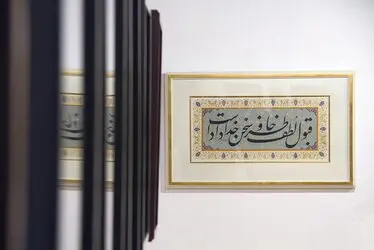 قبول خاطر و لطف سخن خداداد است